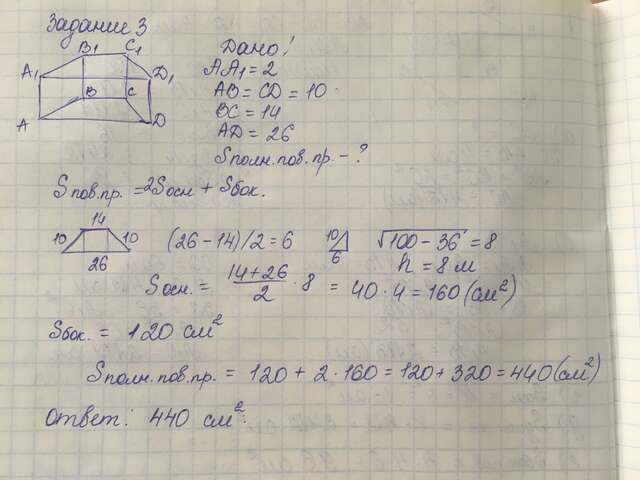 Задание 3
A A₁ B₁ C₁
B C D D₁
Дано:
AA₁ = 2
AB = CD = 10.
BC = 14
AD = 26
Sполн.пов.пр. - ?
Sпов.пр. = 2Sосн + Sбок.
10 14 10
26
(26 - 14)/2 = 6
10
6
√100 - 36 = 8
h = 8 м
Sосн. = 14 + 26 / 2 · 8 = 40 · 4 = 160 (см²)
Sбок. = 120 см²
Sполн.пов.пр. = 120 + 2 · 160 = 120 + 320 = 440 (см²)
Ответ: 440 см².